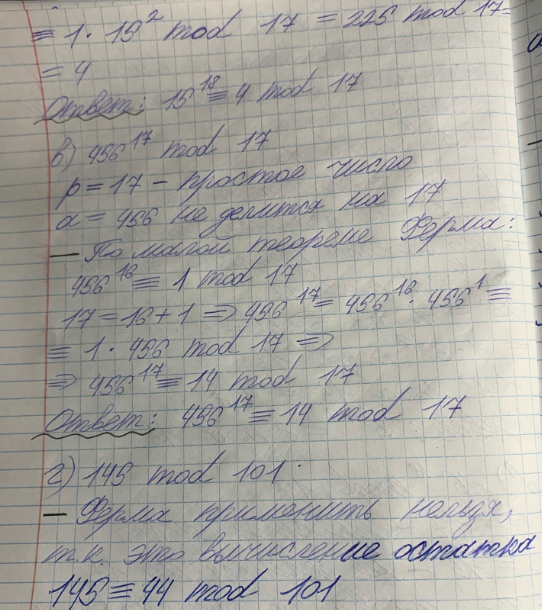 ≡ 1 · 15² mod 17 = 225 mod 17 =
= 4
Ответ: 15¹⁸ ≡ 4 mod 17
в) 456¹⁷ mod 17
p = 17 – простое число
a = 456 не делится на 17
— По малой теореме Ферма:
456¹⁶ ≡ 1 mod 17
17 = 16 + 1 ⇒ 456¹⁷ = 456¹⁶ · 456¹ ≡
≡ 1 · 456 mod 17 ⇒
⇒ 456¹⁷ ≡ 14 mod 17
Ответ: 456¹⁷ ≡ 14 mod 17
г) 145 mod 101
— Ферма применить нельзя,
т.к. это вычисление остатка
145 ≡ 44 mod 101